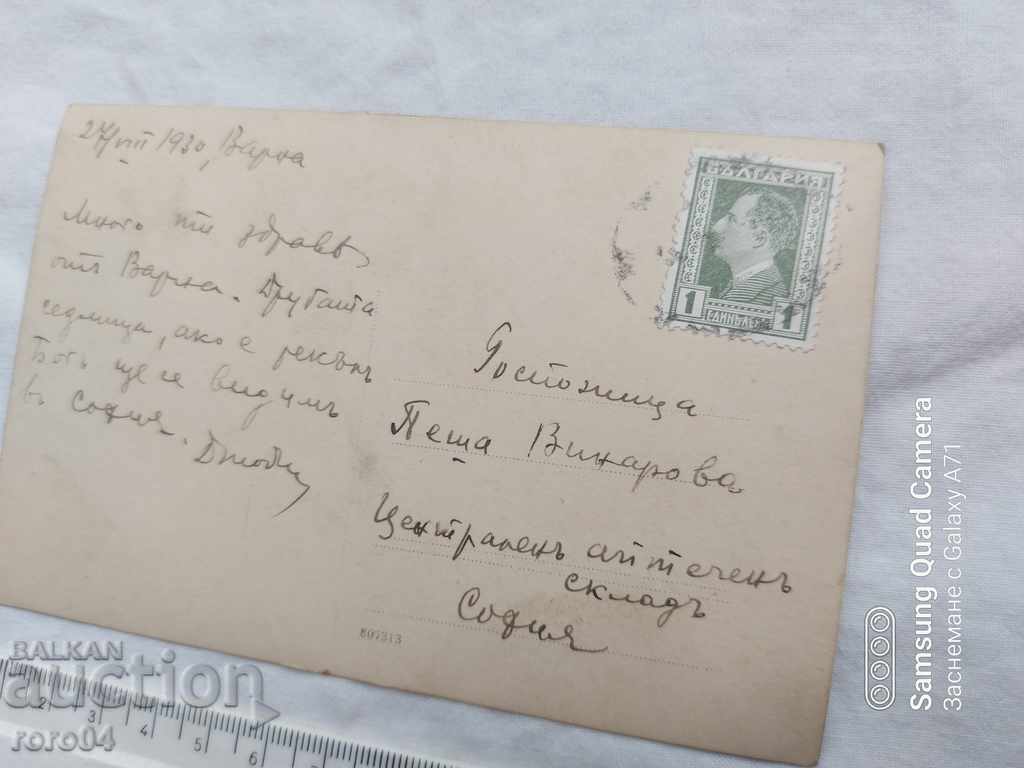 27/VIII 1930, Варна
Много ти здраве
отъ Варна. Другата
седмица, ако е рекълъ
Богъ ще се видимъ
въ София.
БЪЛГАРИЯ
1 ЕДИНЪ ЛЕВЪ 1
Госпожица
Пеша Винарова
Централенъ аптеченъ
складъ
София
807313
BALKAN
auction
roro04
2 3 4 5 6 7 8
Samsung Quad Camera
Заснемане с Galaxy A71